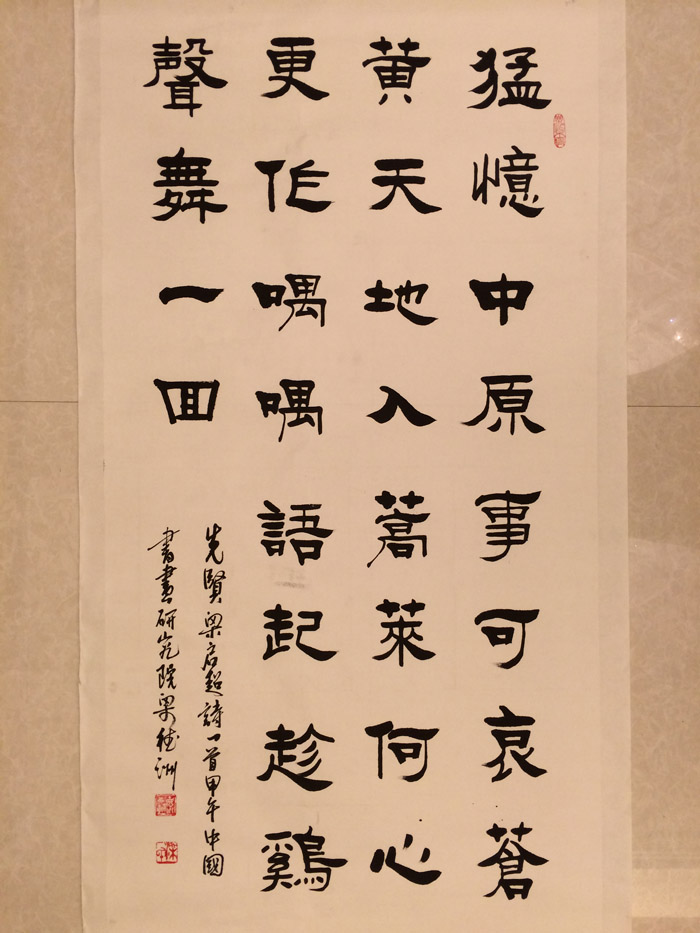 猛憶中原事可哀蒼
黄天地入蒿萊何心
更作喁喁語起趁鷄
聲舞一回
先賢梁启超詩一首甲午中國
書畫研究院梁德洲